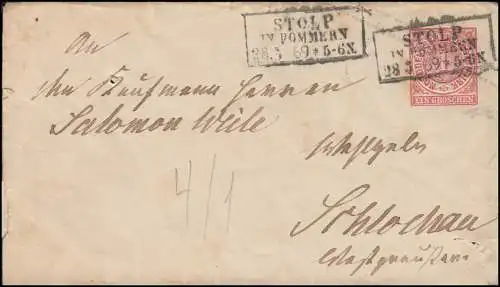 STOLP
IN POMMERN
28 5 69 * 5-6N.
STOLP
IN POMMERN
28 5 69 * 5-6N
EIN GROSCHEN
An
Kaufmann Herren
Salomon
Schlochau
Westpreußen
4/1